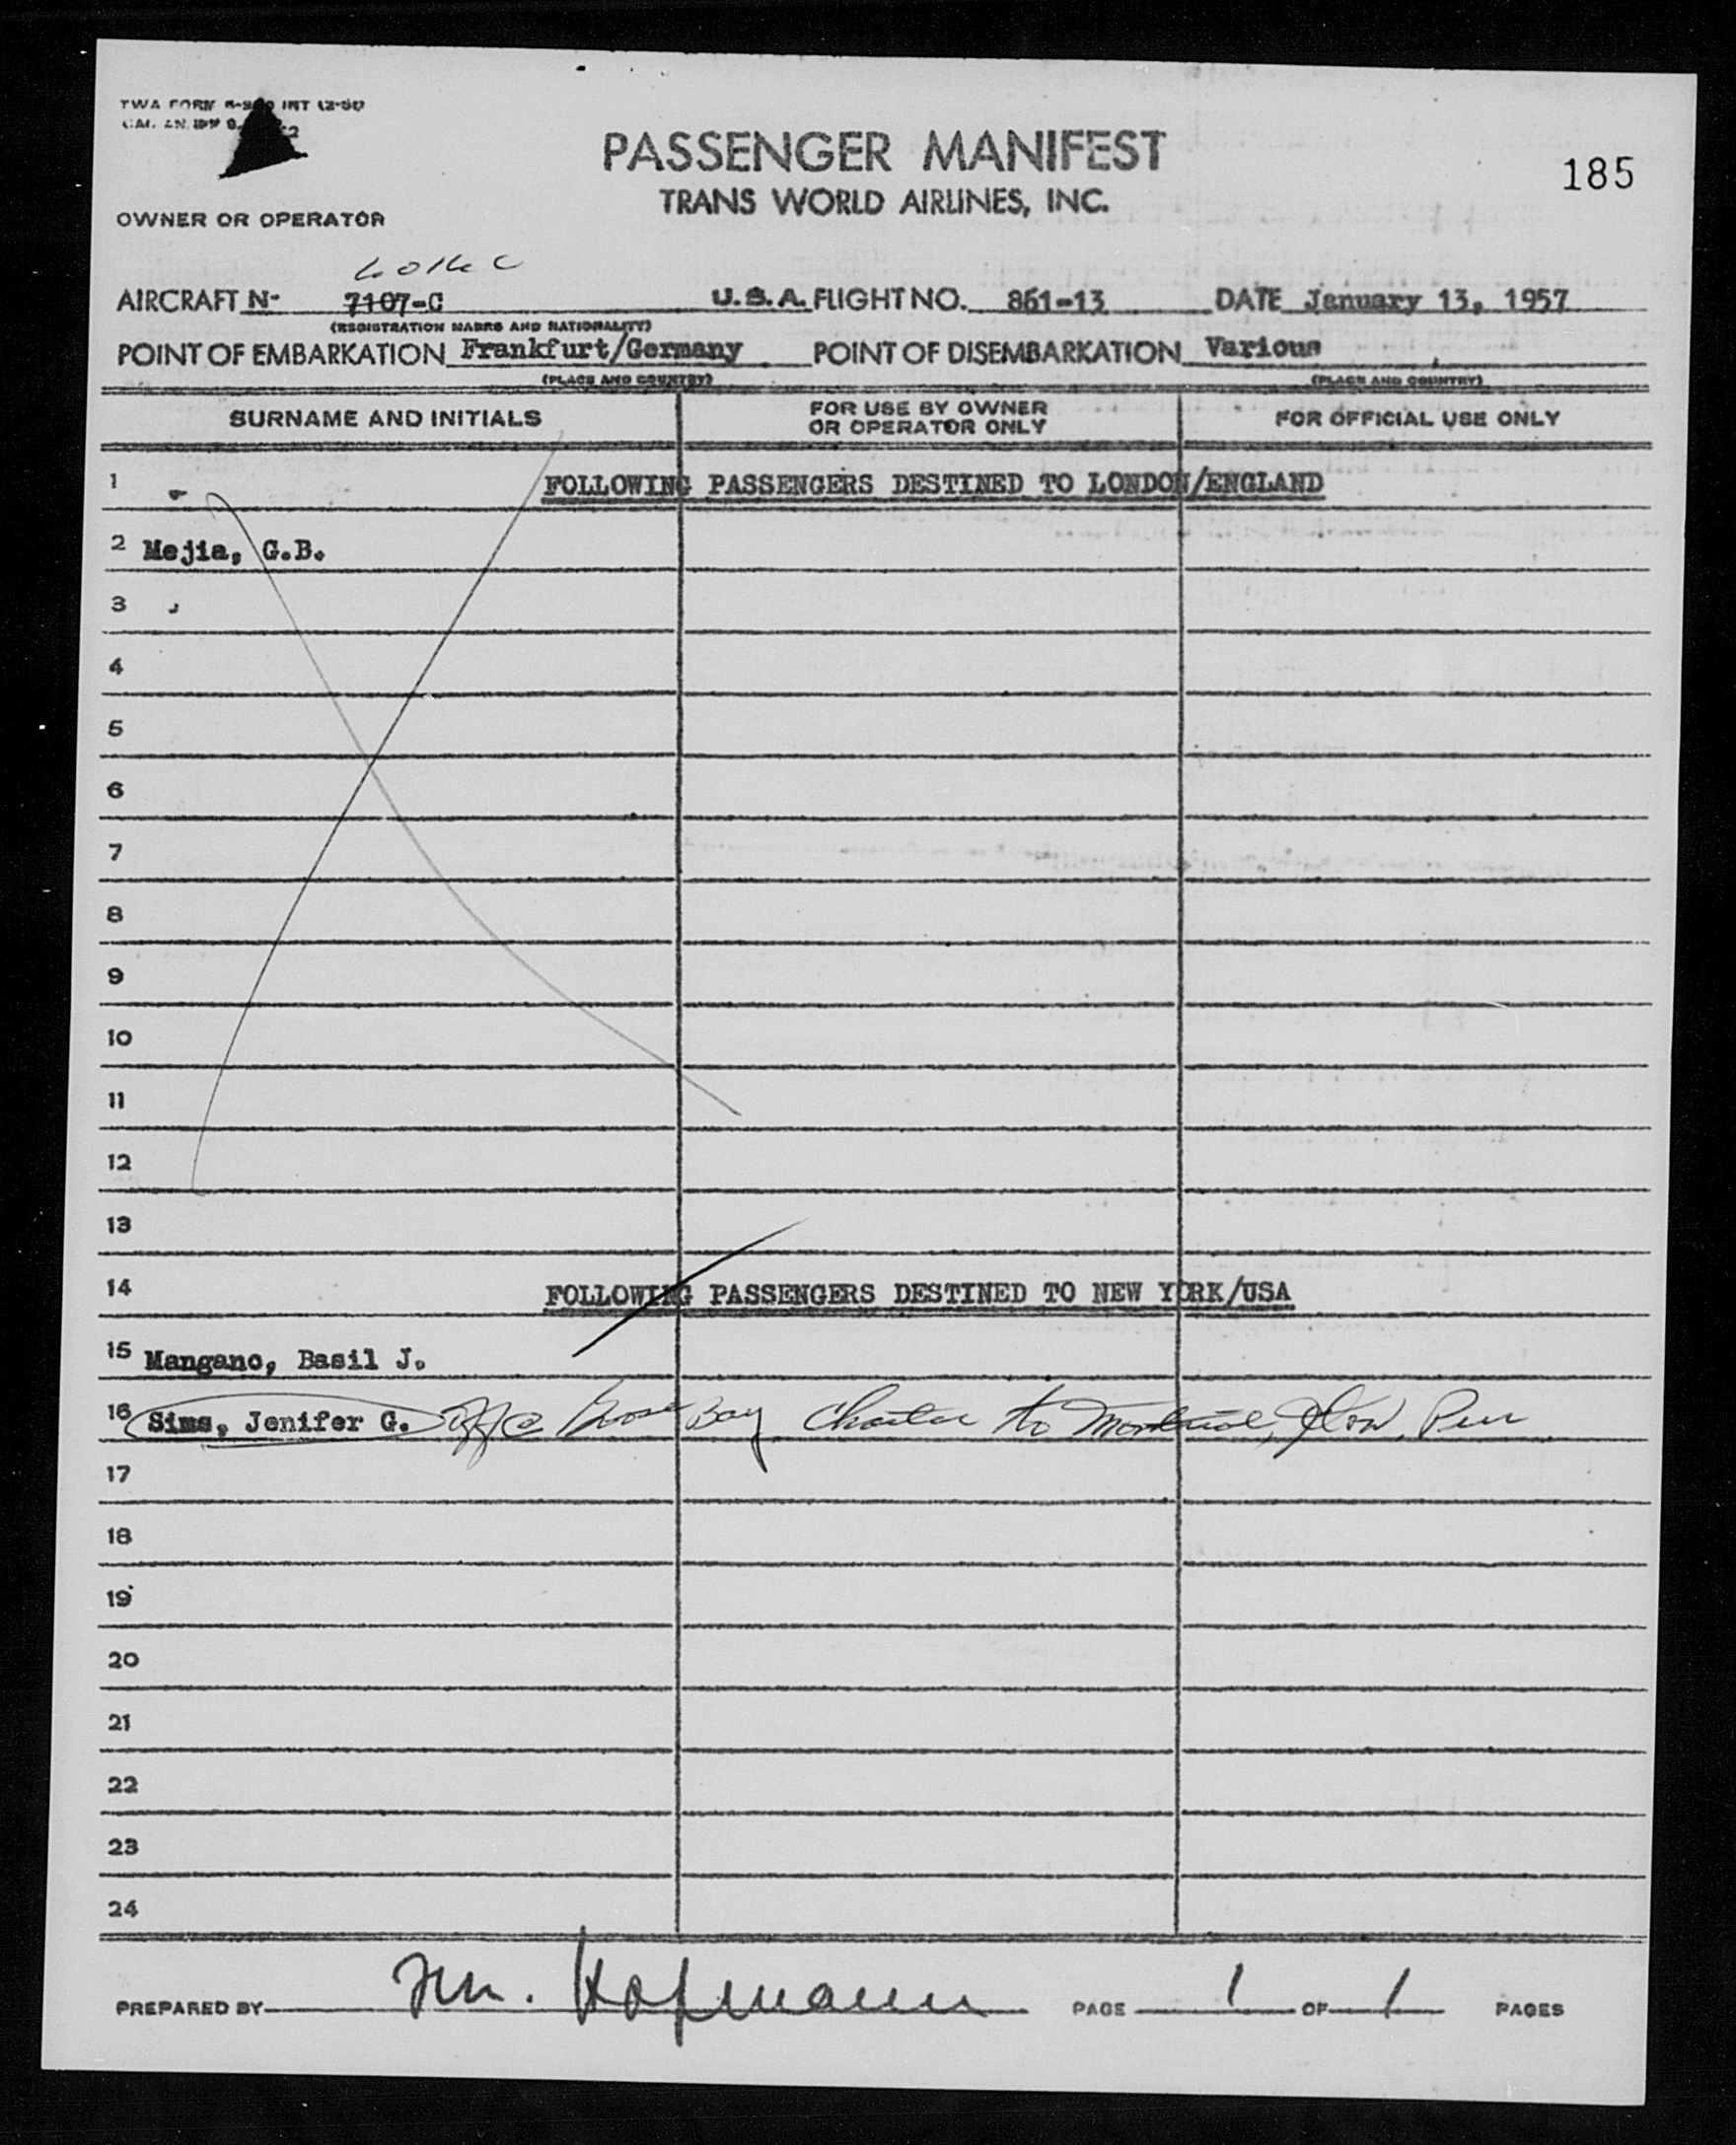 TWA FORM INT
PASSENGER MANIFEST
185
TRANS WORLD AIRLINES, INC.
OWNER OR OPERATOR
AIRCRAFT N- 7107-C U.S.A. FLIGHT NO. 861-13 DATE January 13, 1957
(REGISTRATION MARKS AND NATIONALITY)
POINT OF EMBARKATION Frankfurt/Germany POINT OF DISEMBARKATION Various
(PLACE AND COUNTRY) (PLACE AND COUNTRY)
SURNAME AND INITIALS FOR USE BY OWNER OR OPERATOR ONLY FOR OFFICIAL USE ONLY
1 FOLLOWING PASSENGERS DESTINED TO LONDON/ENGLAND
2 Mejia, G.B.
3
4
5
6
7
8
9
10
11
12
13
14 FOLLOWING PASSENGERS DESTINED TO NEW YORK/USA
15 Mangano, Basil J.
16 Sims, Jenifer G. off @ Goose Bay Charter to Montreal,
17
18
19
20
21
22
23
24
PREPARED BY Hofmann PAGE 1 OF 1 PAGES